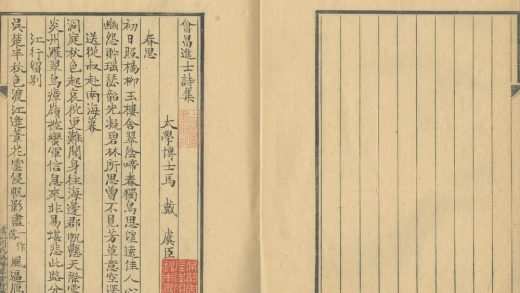 會昌進士詩集
太學博士馬戴虞臣
春思
初日照楊柳玉樓含翠陰啼春獨鳥思望遠佳人心
幽怨貯瑤瑟韶光凝碧林所思曾不見芳草意空深
送從叔赴南海幕
洞庭秋色起哀狖更難聞身往海邊郡帆懸天際雲
炎州羅翠鳥瘴嶺控蠻軍信息來非易堪悲此路分
江行留別
吳楚半秋色渡江逢葦花雲侵帆影盡 落作 風逼鴈